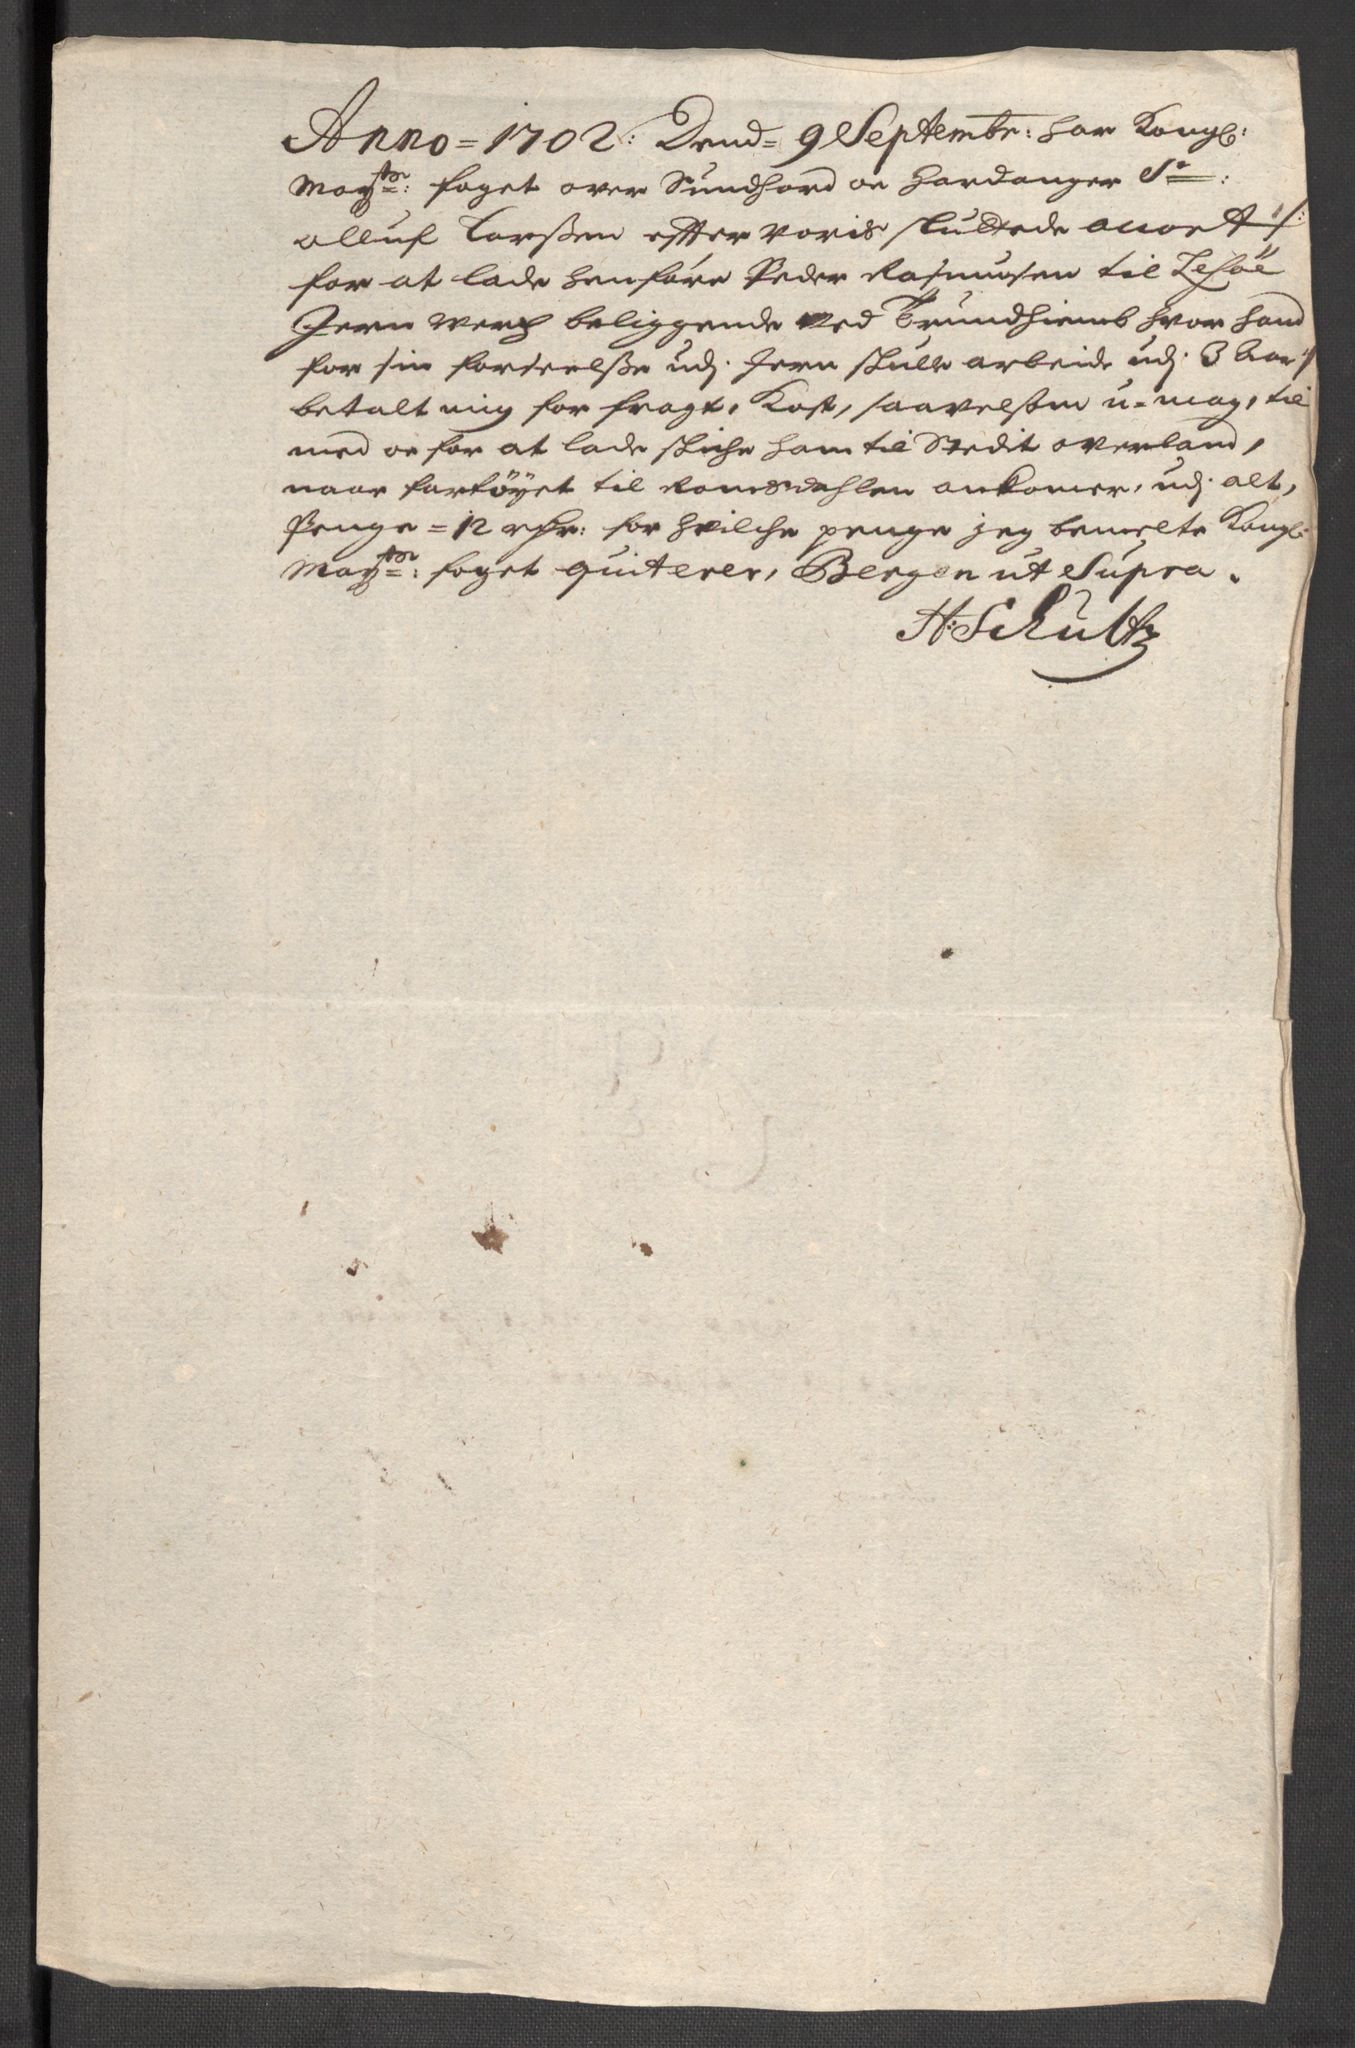 Anno = 1702: Dend = 9 Septembr: har Kongl:
May:ts: foget over Sundhord oc Hardanger Sr:
Olluf Larßen effter voris sluttede accort
for at lade henföre Peder Rasmusen til Leßöe
Jern Werch beliggende ved Trundhiemb hvor hand
for sin forseelße udj Jern skulle arbeide udj 3 Aar
betalt mig for fragt, Kost, saavelsom u-mag, til
med oc for at lade skiche ham til Stedit overland,
naar fartöyet til Romsdahlen ankomer, udj alt,
Penge = 12 rdr: for hvilche penge jeg bemelte Kongl:
May:ts: foget quiterer, Bergen ut Supra.
H: Schultz